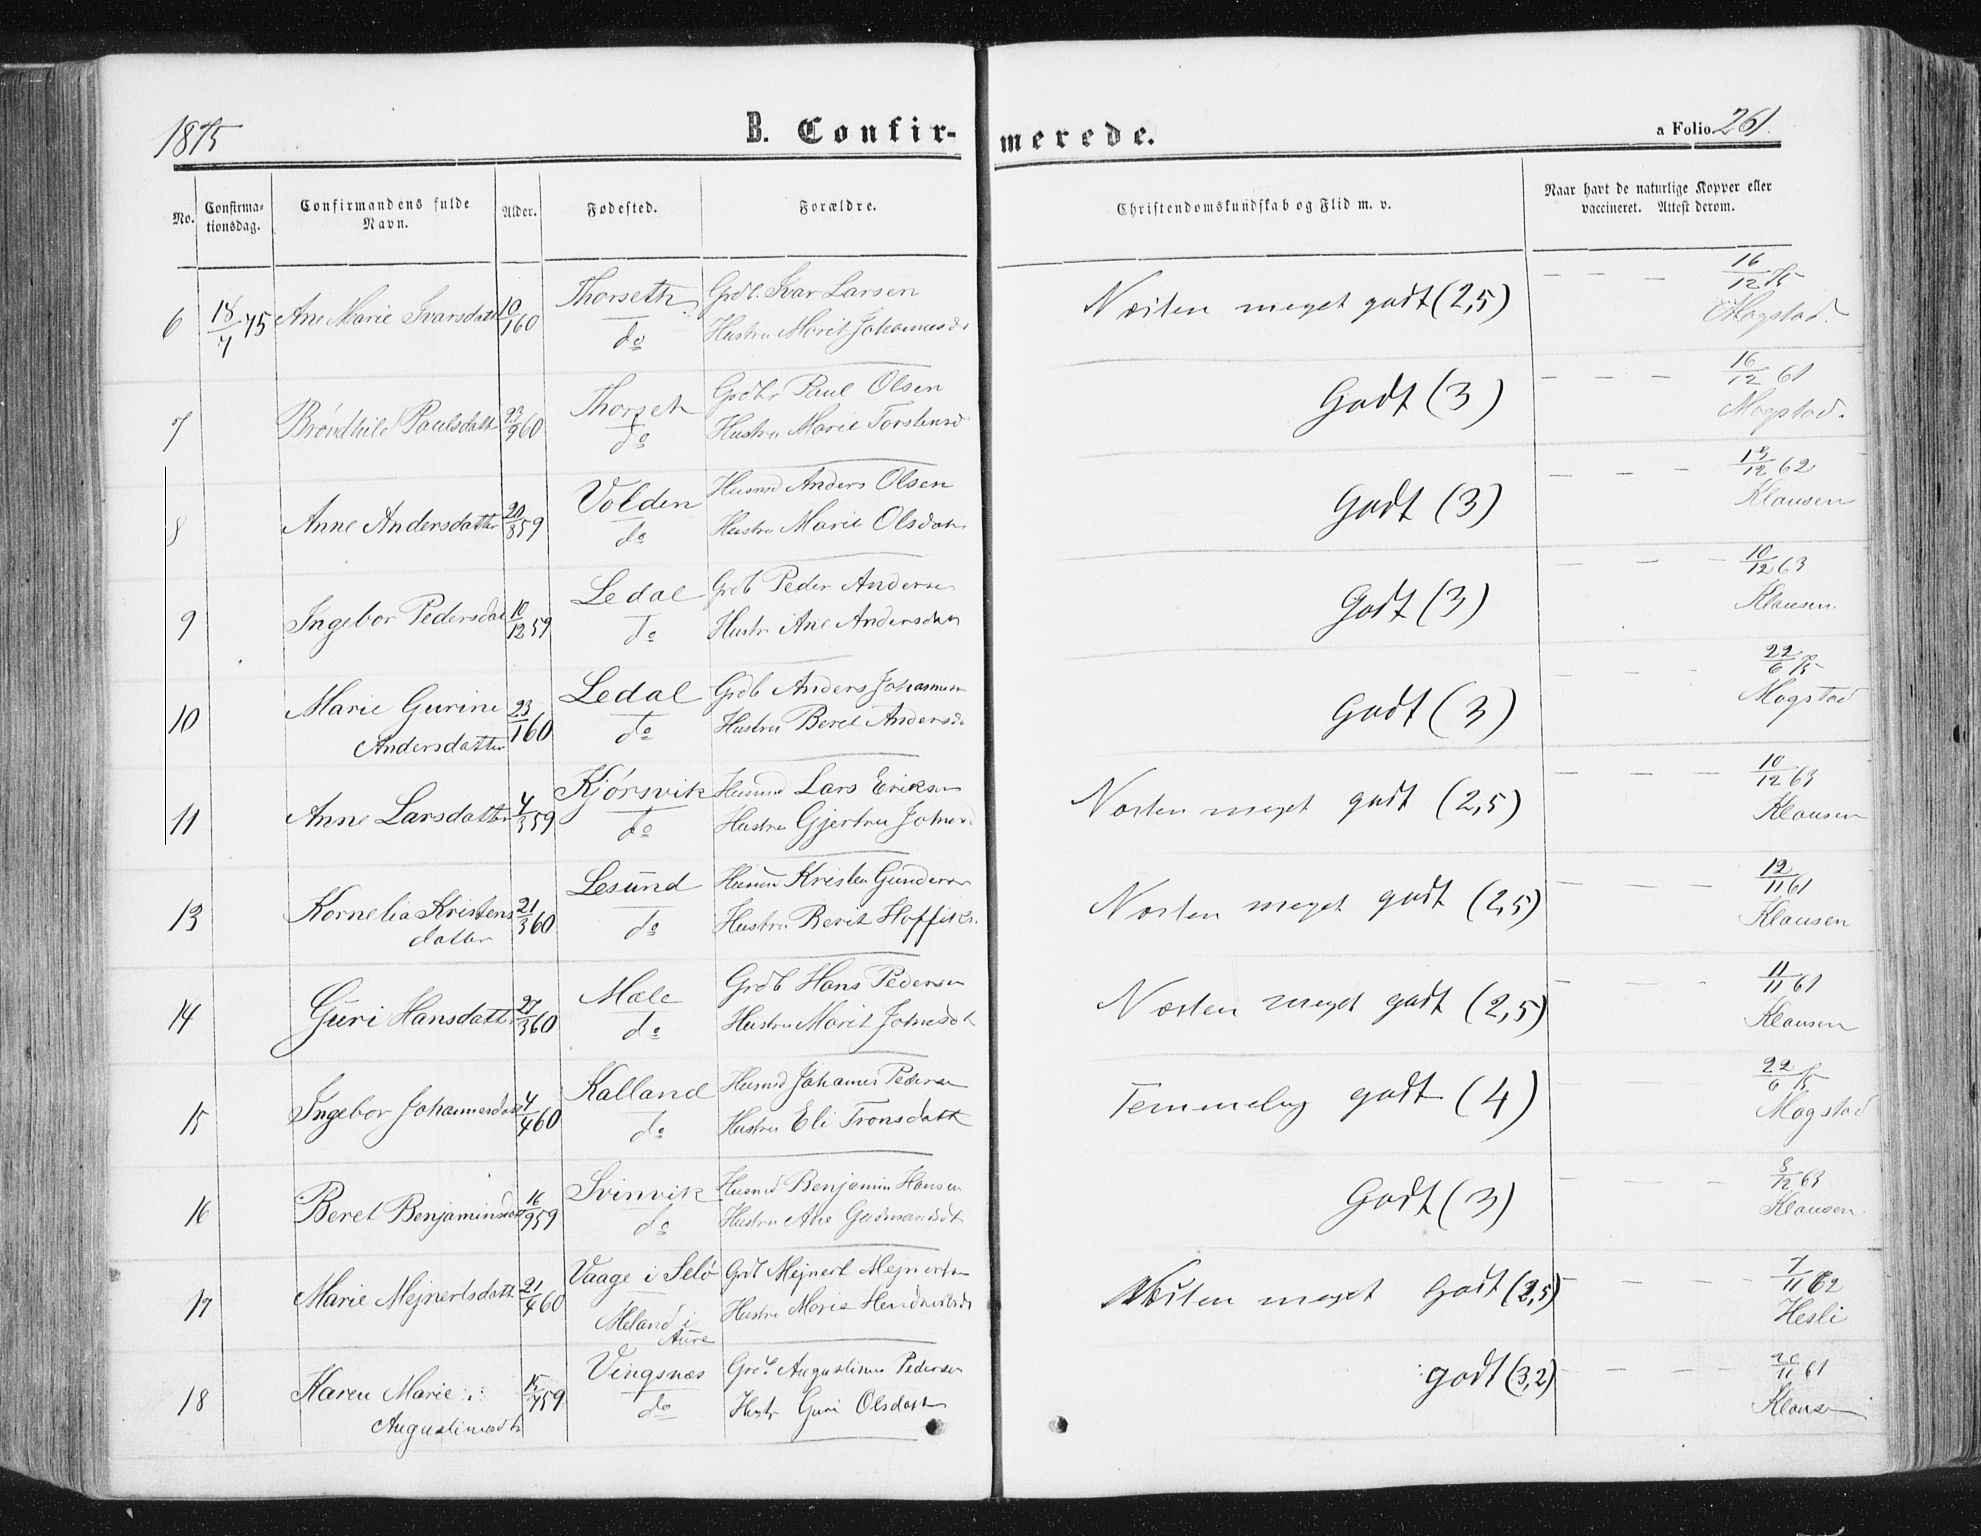 1875
B. Confir-
merede.
a Folio 261.
No.
Confirma-
tionsdag.
Confirmandens fulde
Navn.
Alder.
Fødested.
Forældre.
Christendomskundskab og Flid m. v.
Naar havt de naturlige Kopper eller
vaccineret. Attest derom.
6 18/7 75 Ane Marie Ivarsdatt 10/1 60 Thorseth Grdb. Ivar Larsen Næsten meget godt (2,5) — — — 16/12 75
do Hustru Marit Johannesd. Mogstad.
7 Brøndhild Paulsdatt 23/9 60 Thorset Grdbr Paul Olsen Godt (3) — — — 16/12 61
do Hustru Marie Torstensd Mogstad.
8 Anne Andersdatter 20/8 59 Volden Husmd Anders Olsen Godt (3) — — — 13/12 62
do Hustru Marie Olsdatt Klausen
9 Ingebor Pedersdat 10/12 59 Ledal Grdb Peder Andersen Godt (3) — — — 10/12 63
do Hustr Ane Andersdatt Klausen.
10 Marie Gurine 23/1 60 Ledal Grdb Anders Johannesen Godt (3) — — — 22/6 75
Andersdatter do Hustru Beret Andersd. Mogstad
11 Anne Larsdatter 4/3 59 Kjørsvik Husmd Lars Eriksen Næsten meget godt (2,5) — — — 10/12 63
do Hustru Gjertru Johnsd Klausen
13 Kornelia Kristens 21/3 60 Lesund Husmd Kristen Gunders Næsten meget godt (2,5) — — — 12/11 61
datter do Hustru Berit Klausen
14 Guri Hansdatter 27/3 60 Mæle Grdb Hans Pedersen Næsten meget godt (2,5) — — — 11/11 61
do Hustru Marit Johnsdt Klausen
15 Ingebor Johannesdatt 4/4 60 Kalland Husmd Johannes Pedersen Temmelig godt (4) — — — 22/6 75
do Hustru Eli Tronsdatt Mogstad
16 Beret Benjaminsdat 16/9 59 Svinvik Husmd Benjamin Hansen Godt (3) — — — 8/12 63
do Hustru Ane Gudmundsdt Klausen.
17 Marie Mejnertsdatt 21/4 60 Vaage i Selø Grdb Mejnert Mejnertsen Næsten meget Godt (2,5) — — — 7/11 62
Meland i Hustru Marie Hesli
Aure
18 Karen Marie 15/7 59 Vingsnæs Grdb Augustinus Pedersen godt (3,2) — — — 20/11 61
Augustinusdt do Hustr Guri Olsdatt Klausen